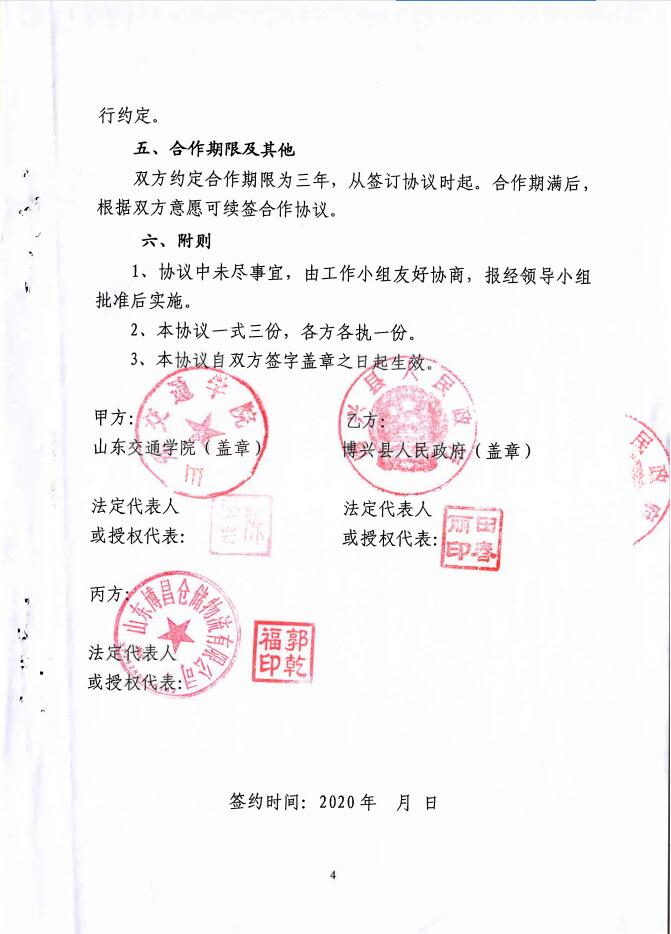 行约定。
五、合作期限及其他
双方约定合作期限为三年，从签订协议时起。合作期满后，
根据双方意愿可续签合作协议。
六、附则
1、协议中未尽事宜，由工作小组友好协商，报经领导小组
批准后实施。
2、本协议一式三份，各方各执一份。
3、本协议自双方签字盖章之日起生效。
甲方：
乙方：
山东交通学院（盖章）
博兴县人民政府（盖章）
交通学院
兴县人民政府
民政府
法定代表人
或授权代表：
陈
法定代表人
或授权代表：
田春
丽印
丙方：
山东博昌仓储物流有限公司
法定代表人
或授权代表：
郭乾
福印
签约时间：2020年 月 日
4